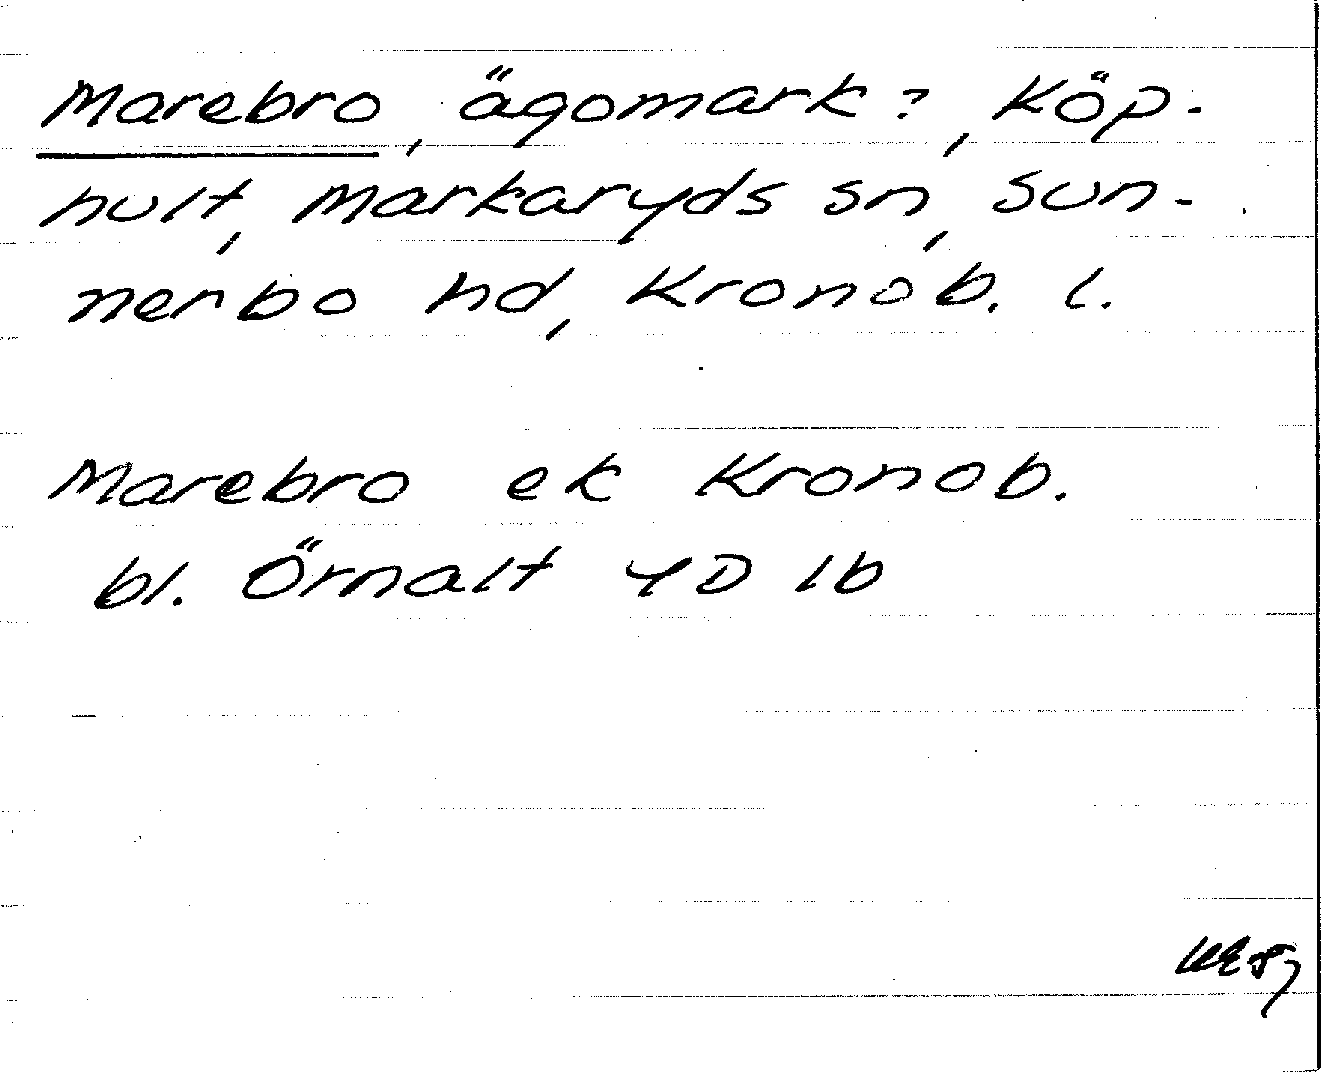 Marebro, ägomark?, Köp-
hult, Markaryds sn, Sun-
nerbo hd, Kronob. l.
Marebro ek Kronob.
bl. Örnalt 4D 1b